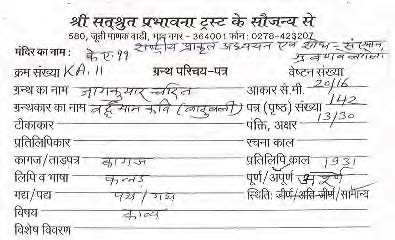 श्री सत्श्रुत प्रभावना ट्रस्ट के सौजन्य से
580, जूनी माणक वाडी, भाव नगर - 364001 फोन : 0278-423207
मंदिर का नाम : के.ए.११ राष्ट्रीय प्राकृत अध्ययन एवं शोध-संस्थान,
क्रम संख्या KA.11 ग्रन्थ परिचय-पत्र वेष्टन संख्या
ग्रन्थ का नाम नागकुमार चरित आकार से.मी. 20/16
ग्रन्थकार का नाम वर्द्धमान कवि (बाहुबली) पत्र (पृष्ठ) संख्या 142
टीकाकार पंक्ति, अक्षर 13/30
प्रतिलिपिकार रचना काल
कागज/ताडपत्र कागज प्रतिलिपि काल 1931
लिपि व भाषा कन्नड पूर्ण/अपूर्ण
गद्य/पद्य पद्य/गद्य स्थिति: जीर्ण/अति जीर्ण/सामान्य
विषय काव्य
विशेष विवरण